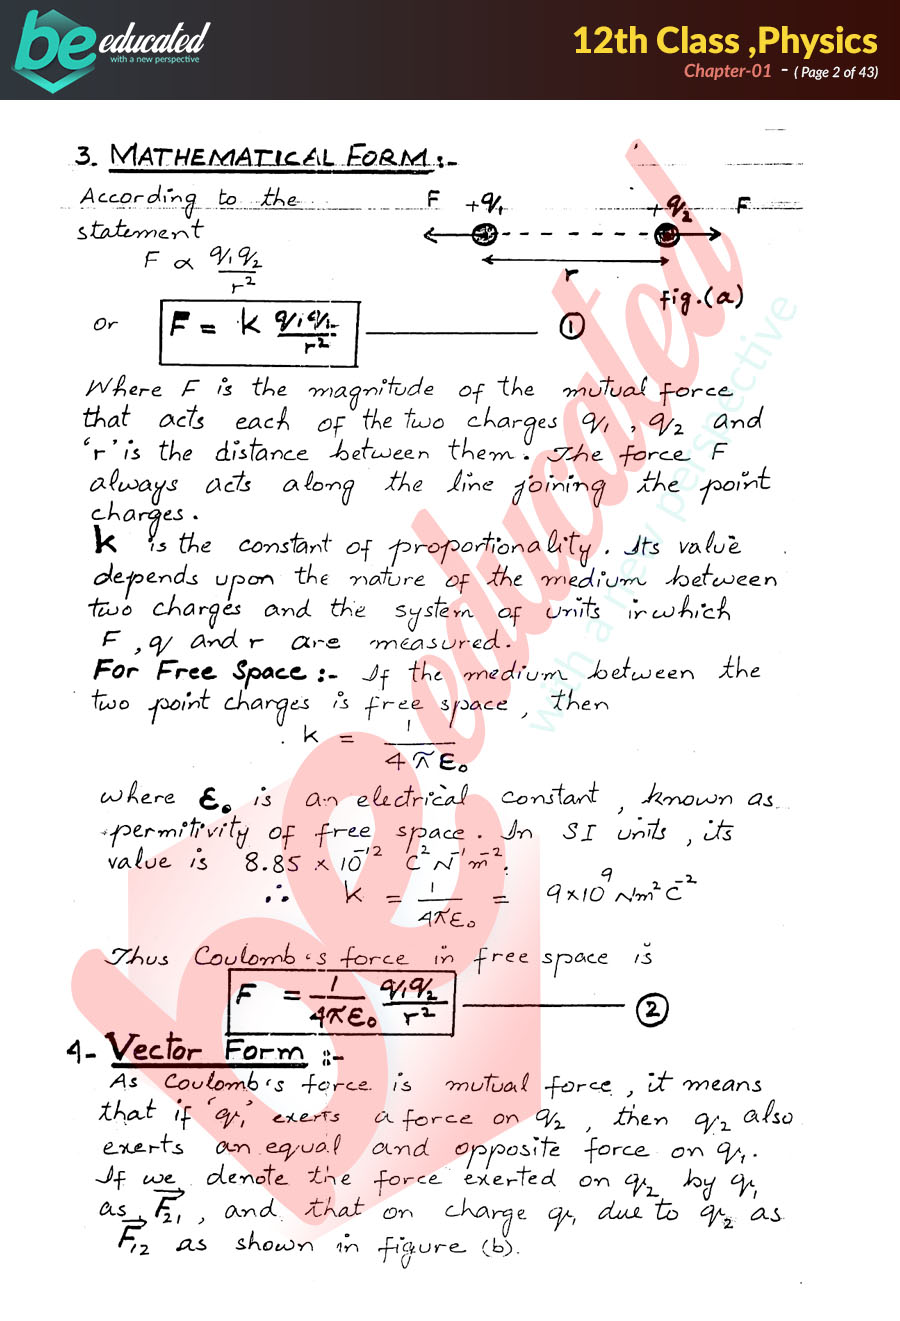 be educated
with a new perspective
12th Class ,Physics
Chapter-01 - ( Page 2 of 43)
3. MATHEMATICAL FORM :-
According to the
statement
F ∝ q₁q₂/r²
F +q₁ +q₂ F
r
fig.(a)
or F = k q₁q₁/r² ——— ①
Where F is the magnitude of the mutual force
that acts each of the two charges q₁ , q₂ and
'r' is the distance between them. The force F
always acts along the line joining the point
charges.
k is the constant of proportionality. Its value
depends upon the nature of the medium between
two charges and the system of units in which
F , q and r are measured.
For Free Space :- If the medium between the
two point charges is free space, then
k = 1/4πε₀
where ε₀ is an electrical constant, known as
permitivity of free space. In SI units, its
value is 8.85 × 10⁻¹² C² N⁻¹ m⁻².
∴ k = 1/4πε₀ = 9×10⁹ Nm² C⁻²
Thus Coulomb's force in free space is
F = 1/4πε₀ q₁q₂/r² ——— ②
4- Vector Form :-
As Coulomb's force is mutual force, it means
that if 'q₁' exerts a force on q₂ , then q₂ also
exerts an equal and opposite force on q₁.
If we denote the force exerted on q₂ by q₁
as F⃗₂₁ , and that on charge q₁ due to q₂ as
F⃗₁₂ as shown in figure (b).
be educated
with a new perspective